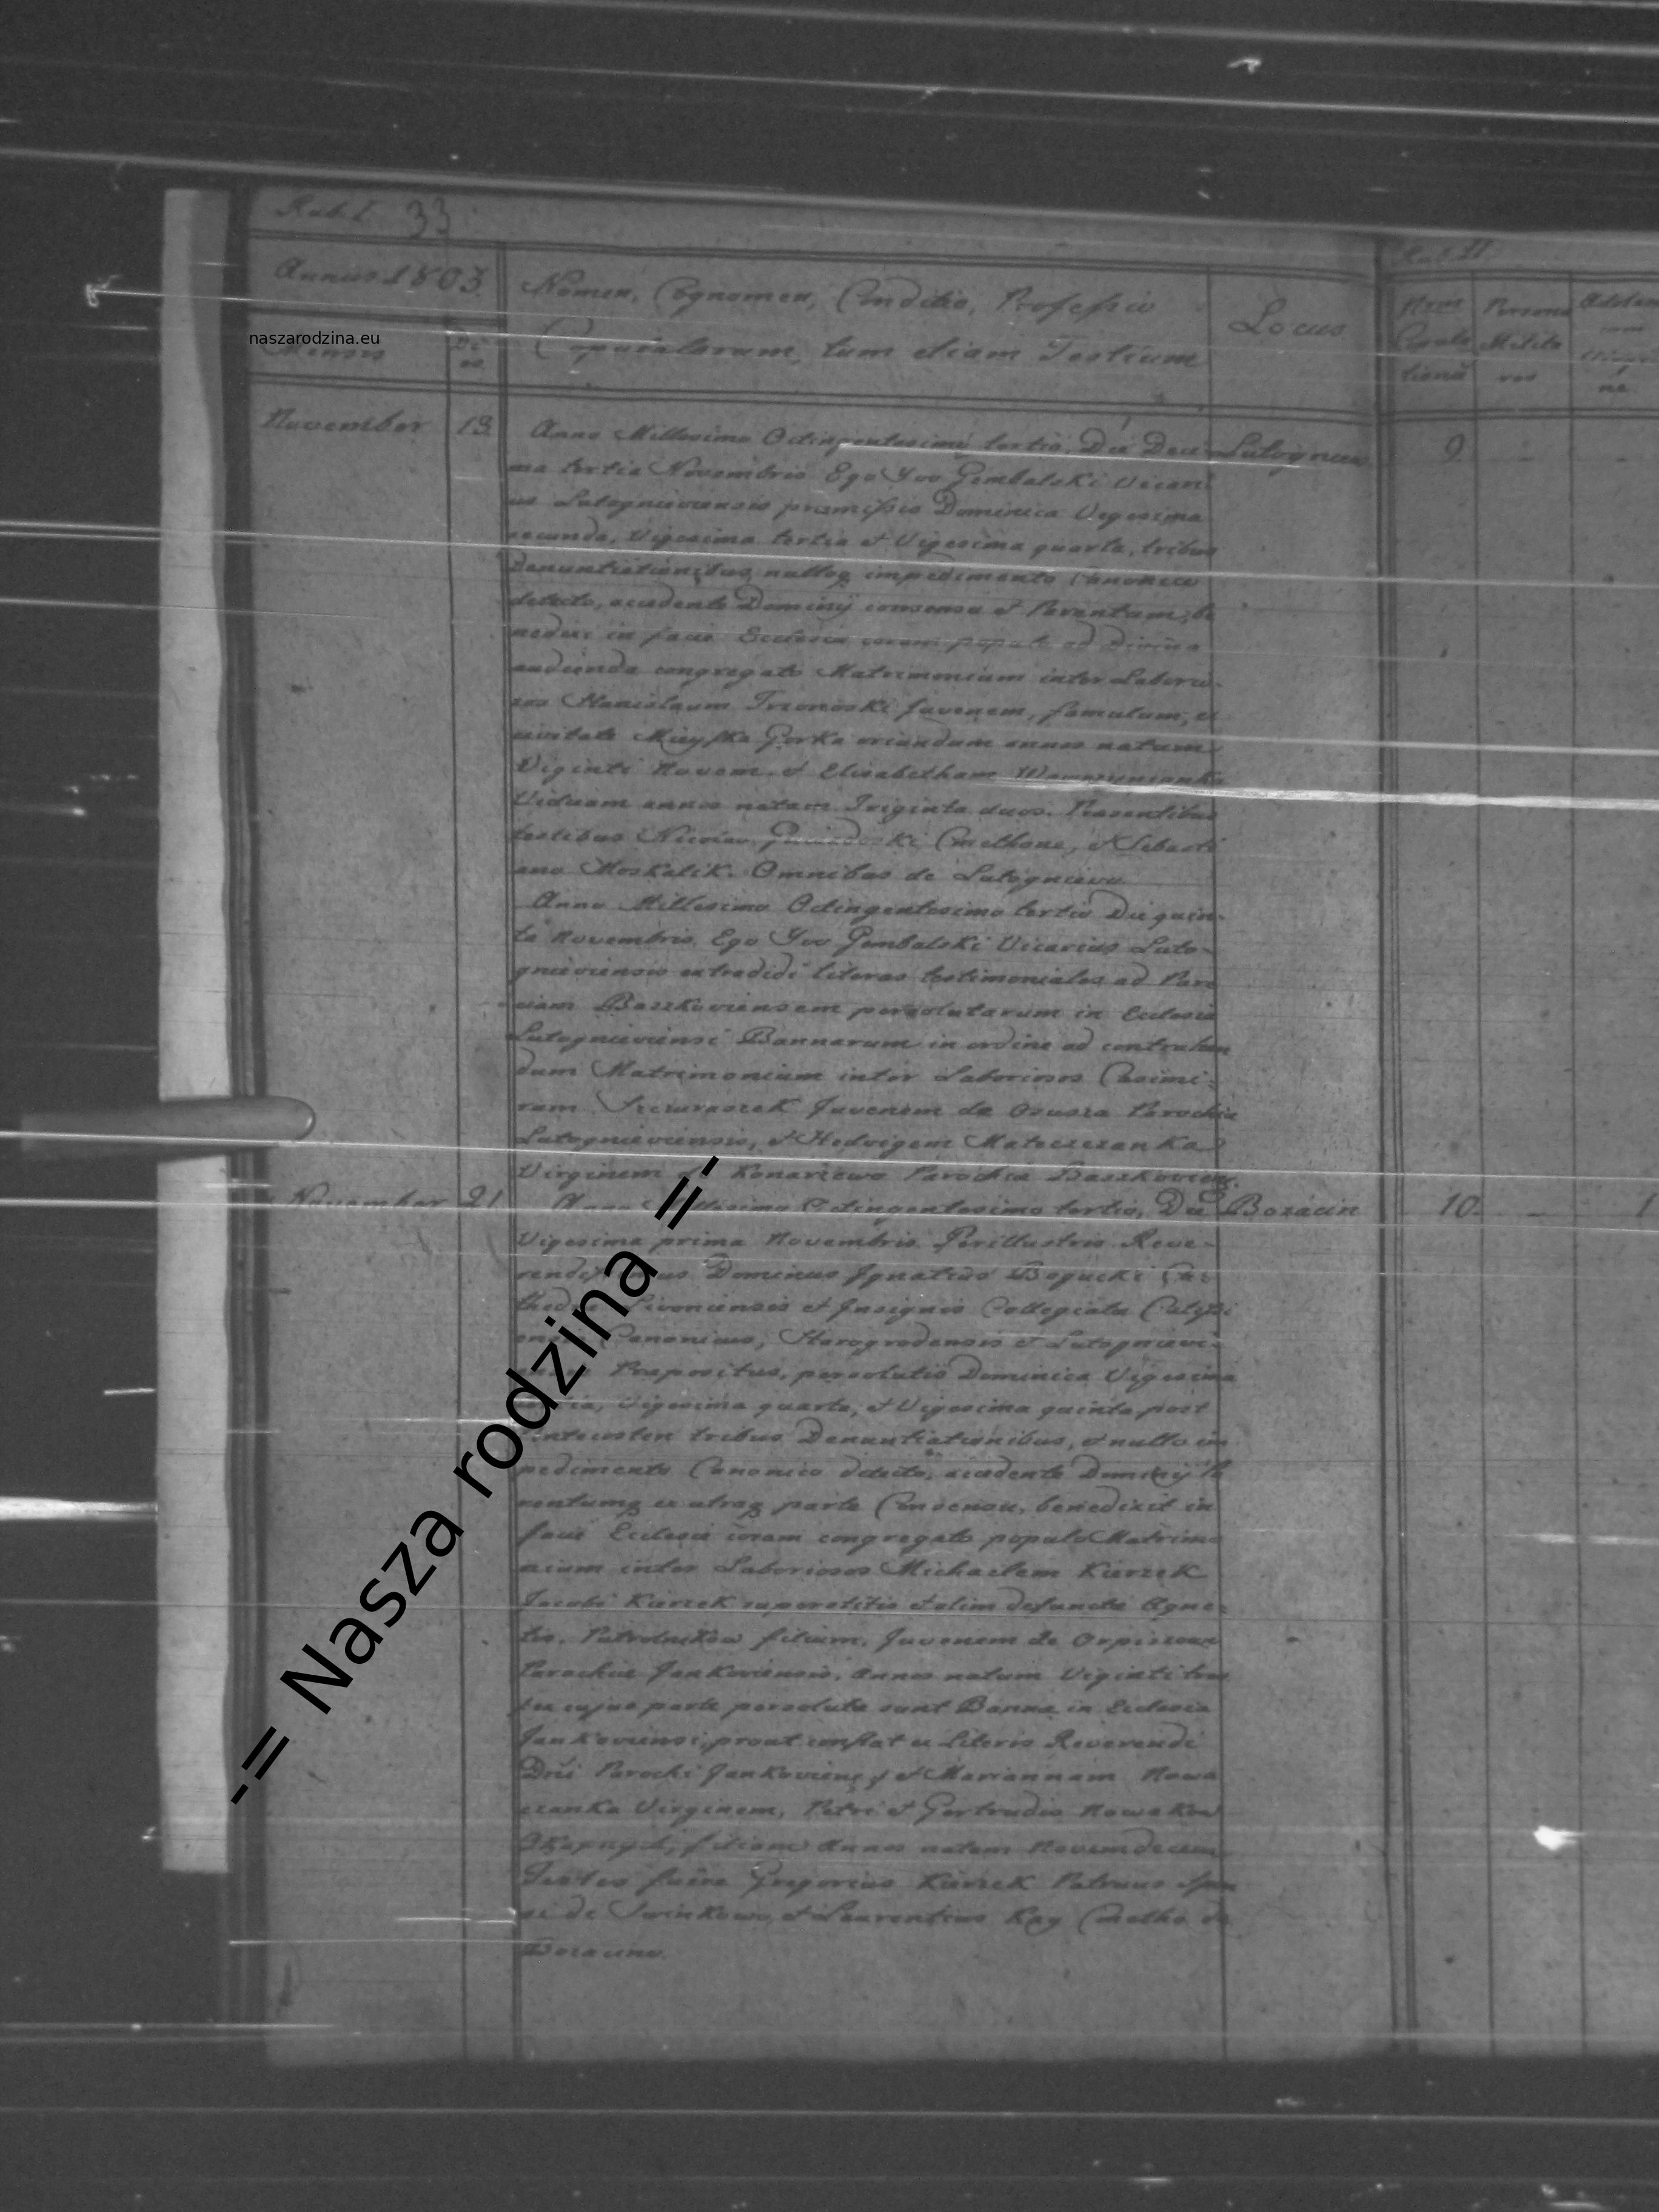 Rub. I. 33
Annus 1803.
Nomen, Cognomen, Conditio, Professio
Copulatorum, tum etiam Testium
Locus
Mensis
Di
es
naszarodzina.eu
Rub. II.
Persona
November 13.
Anno Millesimo Octingentesimo tertio, Die Deci-
Lutogniew
9.
ma tertia Novembris Ego Yvo Gembalski Vicari
us Lutognieviensis præmissis Dominica Vigesima
secunda, Vigesima tertia et Vigesima quarta, tribus
Denuntiationibus nulloq impedimento Canonico
detecto, accedente Dominij consensu et Parentum, be
nedixi in facie Ecclesiæ coram populo ad Divina
audienda congregato Matrimonium inter Laborio-
sos Stanislaum Juvenem, famulum, ex
civitate Gorka oriundum annos natum
Viginti Novem et Elisabetham
Viduam annos natam Triginta duos. Præsentibus
testibus Nicolao Cmethone, et Sebasti
ano Moskalik. Omnibus de Lutogniewo
Anno Millesimo Octingentesimo tertio Die quin-
ta Novembris. Ego Yvo Gembalski Vicarius Luto-
gnieviensis extradidi literas testimoniales ad Paro
ciam Baszkoviensem persolutarum in Ecclesia
Lutognieviensi Bannarum in ordine ad contrahen
dum Matrimonium inter Laboriosos Casimi-
rum Juvenem de Osusza Parochia
Lutognieviensis, et Hedvigem Mateczezanka
Virginem de Konarzewo Parochia Baszkoviens.
November 21
Anno Millesimo Octingentesimo tertio, Die
Bozacin
10.
1
Vigesima prima Novembris Perillustris Reve-
Dominus Ignatius Bogucki Ca-
Livoniensis et Insignis Collegiatæ
Canonicus, Starogrodensis et Lutognievi-
Præpositus, persolutis Dominica Vigesima
Vigesima quarta, et Vigesima quinta post
tribus Denuntiationibus, et nullo im
pedimento Canonico detecto, accedente Dominij Pa
rentumq ex utraq parte Consensu, benedixit in
facie Ecclesiæ coram congregato populo Matrimo
nium inter Laboriosos Michaelem Kierzek
Jacobi Kierzek superstitis et olim defunctæ Agne-
tis, filium, Juvenem de Orpiszew
Parochiæ Jankoviensis, annos natum Viginti tres
ex cujus parte persoluta sunt Banna in Ecclesia
Jankoviensi, prout constat ex Literis Reverendi
Dni Parochi Jankoviens. et Mariannam Nowa
czanka Virginem, Petri et Gertrudis Nowakow
filiam annos natam Novemdecem
Testes fuere Gregorius Kierzek Patruus Spon
si de et Laurentius Kay Cmetho de
Bozacino.
-= Nasza rodzina =-